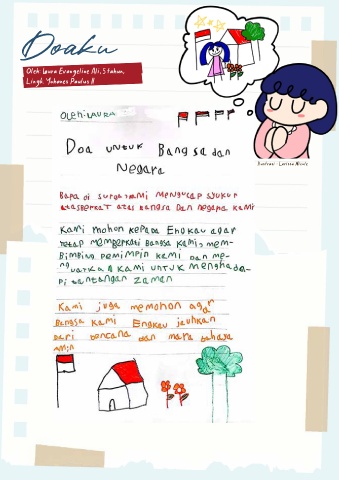 Doaku
Oleh: Laura Evangeline Ali, 5 tahun,
Lingk. Yohanes Paulus II
Ilustrasi : Larissa Nicole
OLEH: LAURA
Doa untuk Bangsa dan
Negara
Bapa di surga kami mengucap syukur
atas berkat atas bangsa dan negara kami
Kami mohon kepada Engkau agar
tetap memberkati bangsa kami mem-
bimbing pemimpin kami dan me-
nguatkan kami untuk menghada-
pi tantangan zaman
Kami juga memohon agar
Bangsa kami Engkau jauhkan
dari bencana dan mara bahaya
Amin